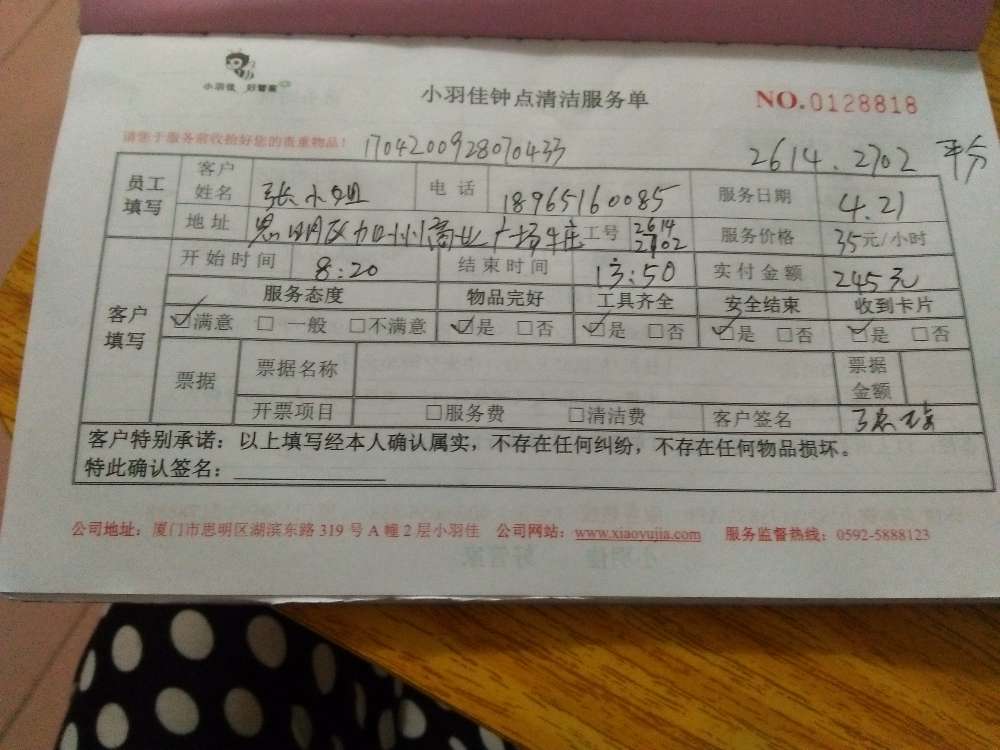 小羽佳 好管家
小羽佳钟点清洁服务单
NO.0128818
请您于服务前收拾好您的贵重物品!
1704200928070433
2614.2702 平分
员工填写 客户姓名 张小姐 电话 18965160085 服务日期 4.21
地址 思明区加州商业广场 工号 2614 2702 服务价格 35元/小时
开始时间 8:20 结束时间 13:50 实付金额 245元
客户填写 服务态度 物品完好 工具齐全 安全结束 收到卡片
☑满意 □一般 □不满意 ☑是 □否 ☑是 □否 ☑是 □否 ☑是 □否
票据 票据名称 票据金额
开票项目 □服务费 □清洁费 客户签名
客户特别承诺:以上填写经本人确认属实,不存在任何纠纷,不存在任何物品损坏。
特此确认签名:
公司地址:厦门市思明区湖滨东路 319 号 A 幢 2 层小羽佳 公司网站:www.xiaoyujia.com 服务监督热线:0592-5888123